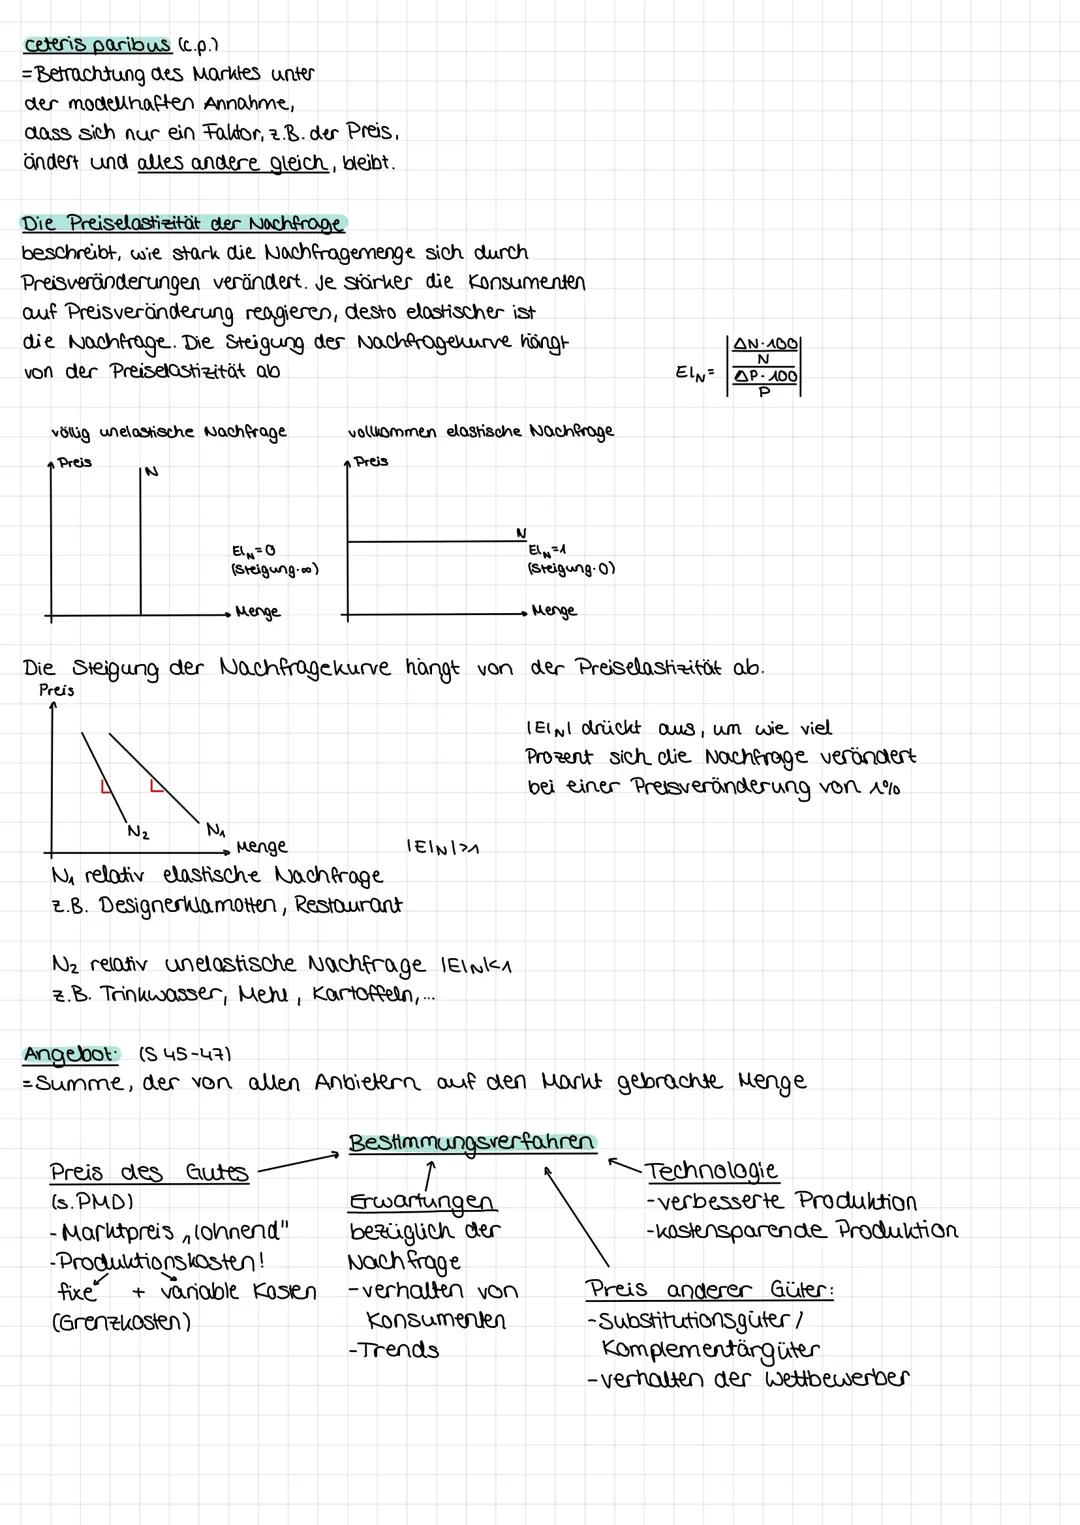 ceteris paribus (c.p.)
=Betrachtung des Marktes unter
der modellhaften Annahme,
dass sich nur ein Faktor, z.B. der Preis,
ändert und alles andere gleich, bleibt.
Die Preiselastizität der Nachfrage
beschreibt, wie stark die Nachfragemenge sich durch
Preisveränderungen verändert. Je stärker die Konsumenten
auf Preisveränderung reagieren, desto elastischer ist
die Nachfrage. Die Steigung der Nachfragekurve hängt
von der Preiselastizität ab
ElN= |ΔN·100
N
ΔP·100
P|
völlig unelastische Nachfrage
vollkommen elastische Nachfrage
Preis
N
ElN=0
(Steigung·∞)
Menge
Preis
N
ElN=1
(Steigung·0)
Menge
Die Steigung der Nachfragekurve hängt von der Preiselastizität ab.
Preis
N2
N1
Menge
|ElN| drückt aus, um wie viel
Prozent sich die Nachfrage verändert
bei einer Preisveränderung von 1%
|ElN|>1
N1 relativ elastische Nachfrage
z.B. Designerklamotten, Restaurant
N2 relativ unelastische Nachfrage |ElN|<1
z.B. Trinkwasser, Mehl, Kartoffeln,...
Angebot: (S 45-47)
=Summe, der von allen Anbietern auf den Markt gebrachte Menge
Bestimmungsverfahren
Preis des Gutes
(s.PMD)
-Marktpreis „lohnend"
-Produktionskosten!
fixe + variable Kosten
(Grenzkosten)
Erwartungen
bezüglich der
Nachfrage
-verhalten von
Konsumenten
-Trends
Technologie
-verbesserte Produktion
-kostensparende Produktion
Preis anderer Güter:
-Substitutionsgüter/
Komplementärgüter
-verhalten der Wettbewerber